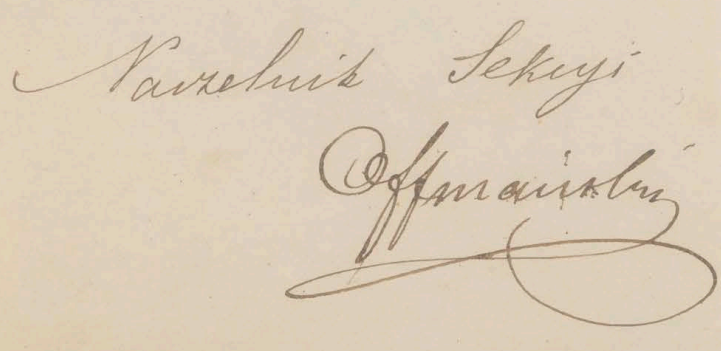 Naczelnik Sekcyi
Offmański